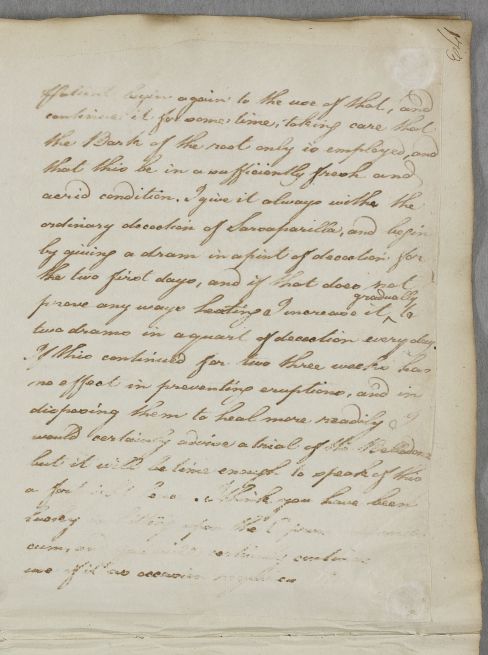 173
Patient begin again to the use of that, and
continues it for some time, taking care that
the Bark of the root only is employed, and
that this be in a sufficiently fresh and
acrid condition. I give it always with the
ordinary decoction of Sarsaparilla, and begin
by giving a dram in a pint of decoction for
the two first days, and if that does not
prove any ways heating I increase it gradually to
two drams in a quart of decoction every day.
If this continued for two three weeks has
no effect in preventing eruptions, and in
disposing them to heal more readily I
would certainly advise a trial of the Belladona
but it will be time enough to speak of this
a I think you have been
lucky in upon the
cum, and certainly continue
use of it as occasion requires